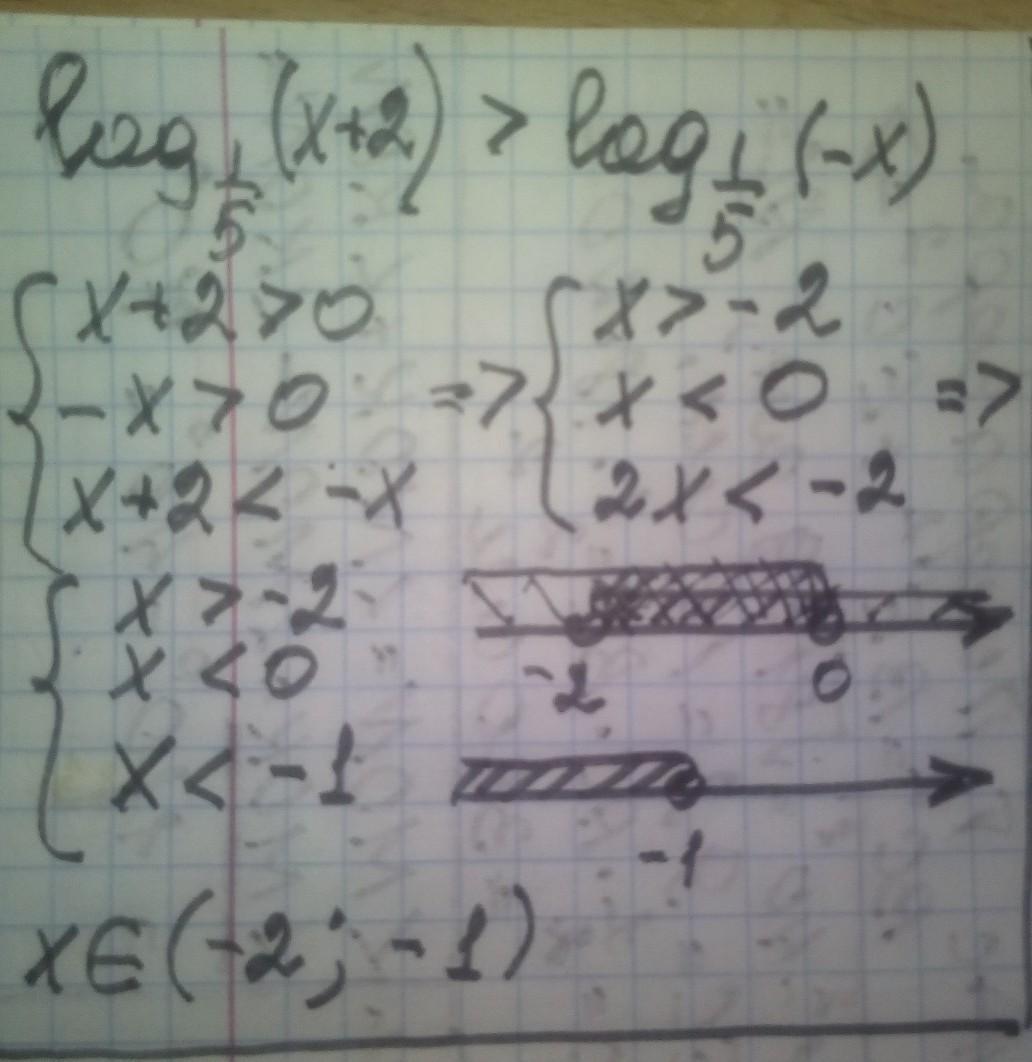 log 1/5 (x+2) > log 1/5 (-x)
{ x+2>0 { x>-2
-x>0 => x<0 =>
x+2<-x 2x<-2
{ x>-2
x<0 -2 0
x<-1
-1
x∈(-2;-1)